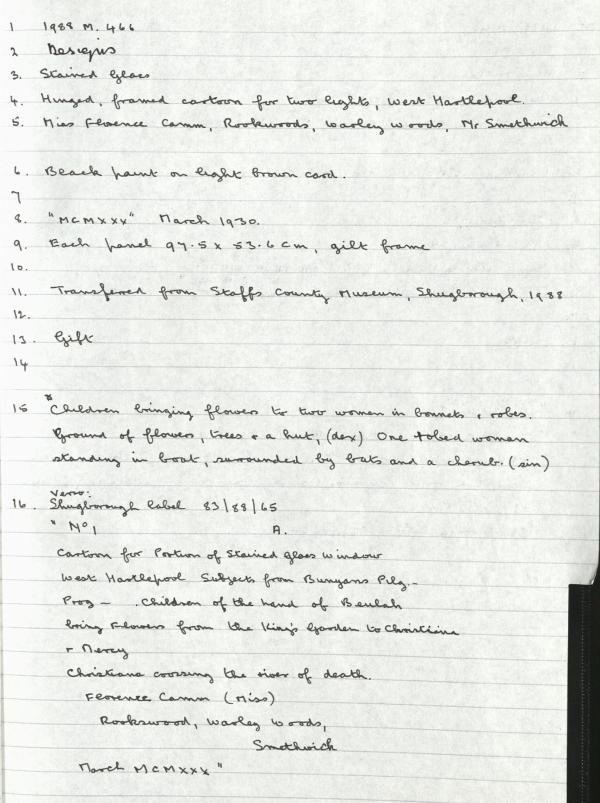 1 1988 M. 466
2 Designs
3. Stained Glass
4. Hinged, framed cartoon for two lights, West Hartlepool.
5. Miss Florence Camm, Rookwoods, Warley Woods, Nr Smethwick
6. Black paint on light brown card.
7
8. "MCMXXX" March 1930.
9. Each panel 97.5 x 53.6 cm, gilt frame
10.
11. Transferred from Staffs County Museum, Shugborough, 1988
12.
13. Gift
14
15 * Children bringing flowers to two women in bonnets & robes.
Ground of flowers, trees & a hut, (dex) One robed woman
standing in boat, surrounded by bats and a cherub. (sin)
Verso:
16. Shugborough label 83/88/65
" No 1 A.
Cartoon for Portion of Stained Glass Window
West Hartlepool Subjects from Bunyans Pilg.-
Prog - . Children of the land of Beulah
bring Flowers from the King's Garden to Christiana
& Mercy
Christiana crossing the river of death.
Florence Camm (Miss)
Rookswood, Warley Woods,
Smethwick
March MCMXXX"